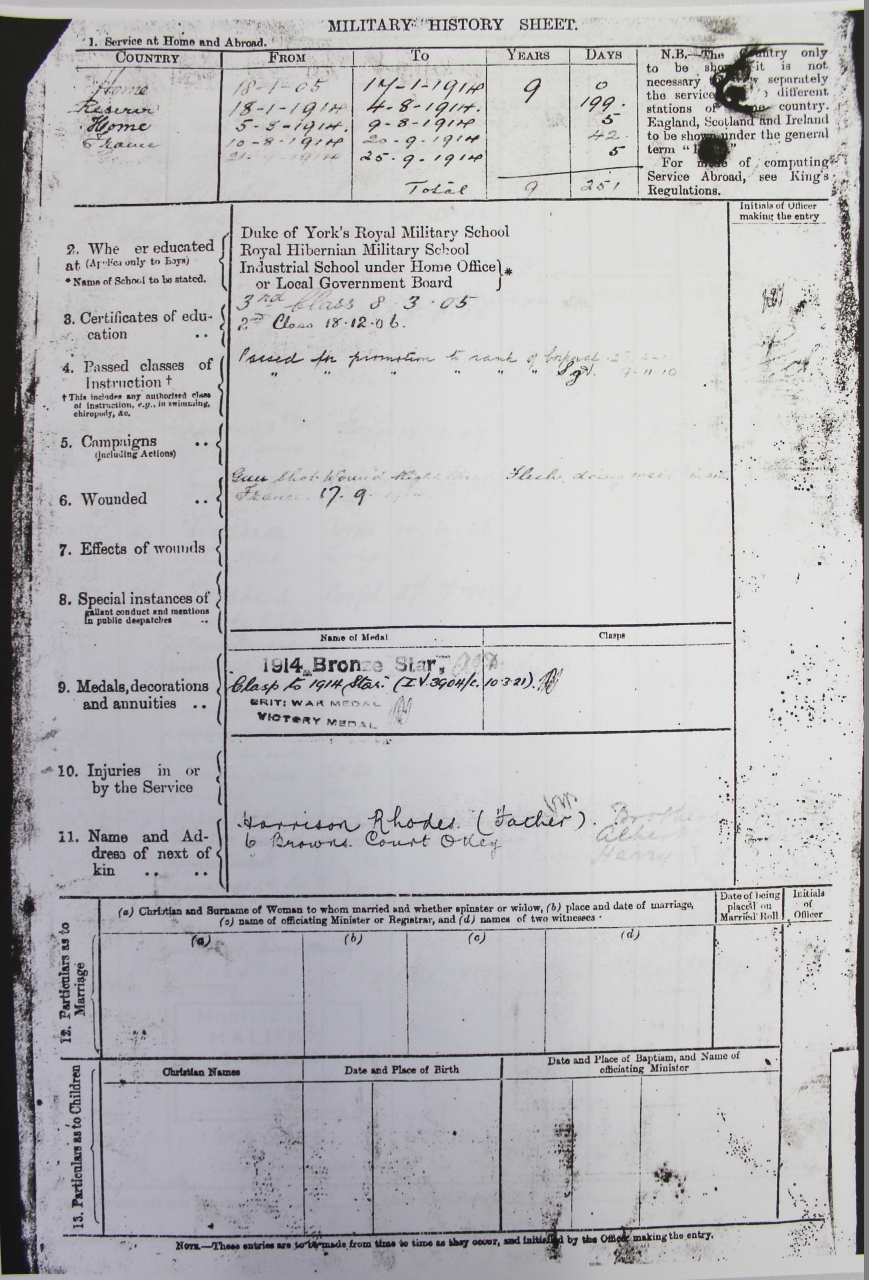 MILITARY HISTORY SHEET.
1. Service at Home and Abroad.
COUNTRY FROM TO YEARS DAYS
Home 18-1-05 17-1-1914 9 0
Reserve 18-1-1914 4-8-1914. 199.
Home 5-8-1914. 9-8-1914 5
France 10-8-1914 20-9-1914 42.
21-9-1914 25-9-1914 5
Total 9 251
N.B.—The Country only
to be it is not
necessary separately
the service different
stations of country.
England, Scotland and Ireland
to be shown under the general
term "
For of computing
Service Abroad, see King's
Regulations.
Initials of Officer
making the entry
2. Whe er educated
at (Applies only to Boys)
*Name of School to be stated.
Duke of York's Royal Military School
Royal Hibernian Military School
Industrial School under Home Office
or Local Government Board }*
3. Certificates of edu-
cation ..
3rd Class 8.3.05
2nd Class 18.12.06.
4. Passed classes of
Instruction †
† This includes any authorised class
of instruction, e.g., in swimming,
chiropody, &c.
Passed for promotion to rank of Corporal
" " " " " " Sgt. 11.10
5. Campaigns ..
(including Actions)
6. Wounded ..
Gun Shot Wound Right Flesh, doing well
France. 17.9.
7. Effects of wounds
8. Special instances of
gallant conduct and mentions
in public despatches ..
Name of Medal Clasps
9. Medals, decorations
and annuities ..
1914 Bronze Star,
Clasp to 1914 Star. (I.V.3904/c. 10.3.21).
BRIT: WAR MEDAL
VICTORY MEDAL
10. Injuries in or
by the Service
11. Name and Ad-
dress of next of
kin .. ..
Harrison Rhodes. (Father). Brother
6 Browns Court Otley Albert
Harry
12. Particulars as to Marriage
(a) Christian and Surname of Woman to whom married and whether spinster or widow, (b) place and date of marriage,
(c) name of officiating Minister or Registrar, and (d) names of two witnesses
Date of being
placed on
Married Roll
Initials
of
Officer
(a) (b) (c) (d)
13. Particulars as to Children
Christian Names Date and Place of Birth Date and Place of Baptism, and Name of
officiating Minister
NOTE.—These entries are to be made from time to time as they occur, and initialed by the Officer making the entry.